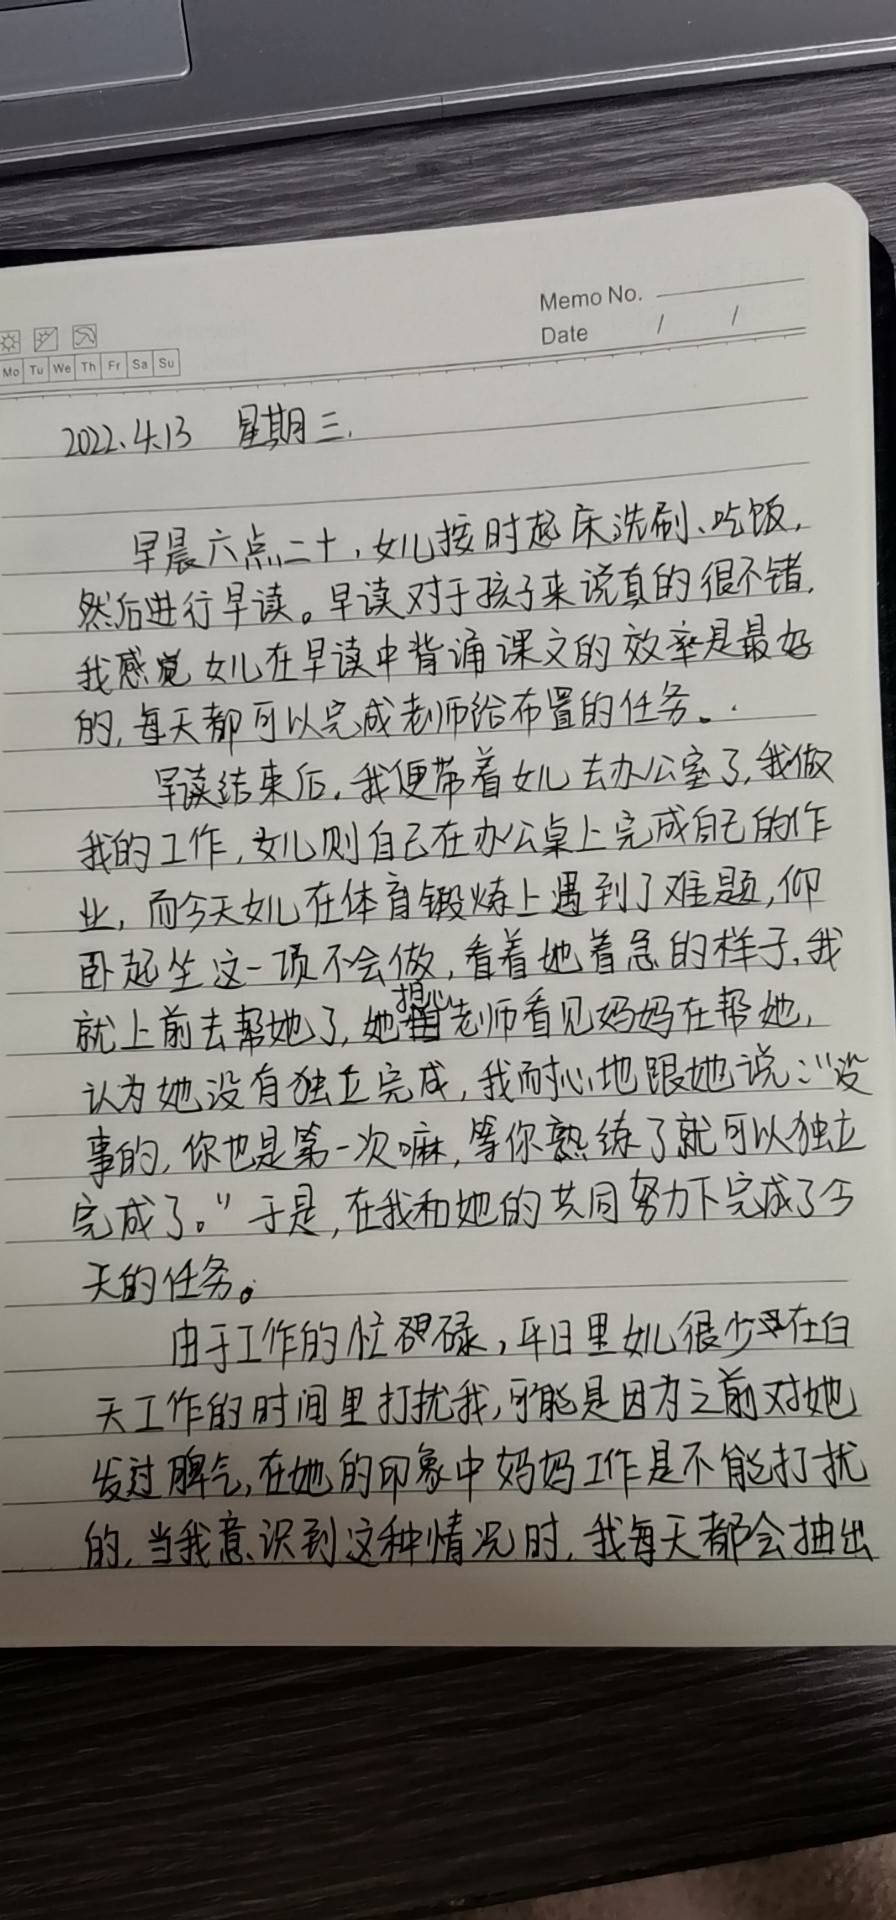 Memo No.
Date / /
Mo Tu We Th Fr Sa Su
2022.4.13 星期三.
早晨六点二十,女儿按时起床洗刷、吃饭,
然后进行早读。早读对于孩子来说真的很不错,
我感觉女儿在早读中背诵课文的效率是最好
的,每天都可以完成老师给布置的任务。
早读结束后,我便带着女儿去办公室了,我做
我的工作,女儿则自己在办公桌上完成自己的作
业,而今天女儿在体育锻炼上遇到了难题,仰
卧起坐这一项不会做,看着她着急的样子,我
就上前去帮她了,她担心老师看见妈妈在帮她,
认为她没有独立完成,我耐心地跟她说:“没
事的,你也是第一次嘛,等你熟练了就可以独立
完成了。”于是,在我和她的共同努力下完成了今
天的任务。
由于工作的忙碌,平日里女儿很少在白
天工作的时间里打扰我,可能是因为之前对她
发过脾气,在她的印象中妈妈工作是不能打扰
的,当我意识到这种情况时,我每天都会抽出